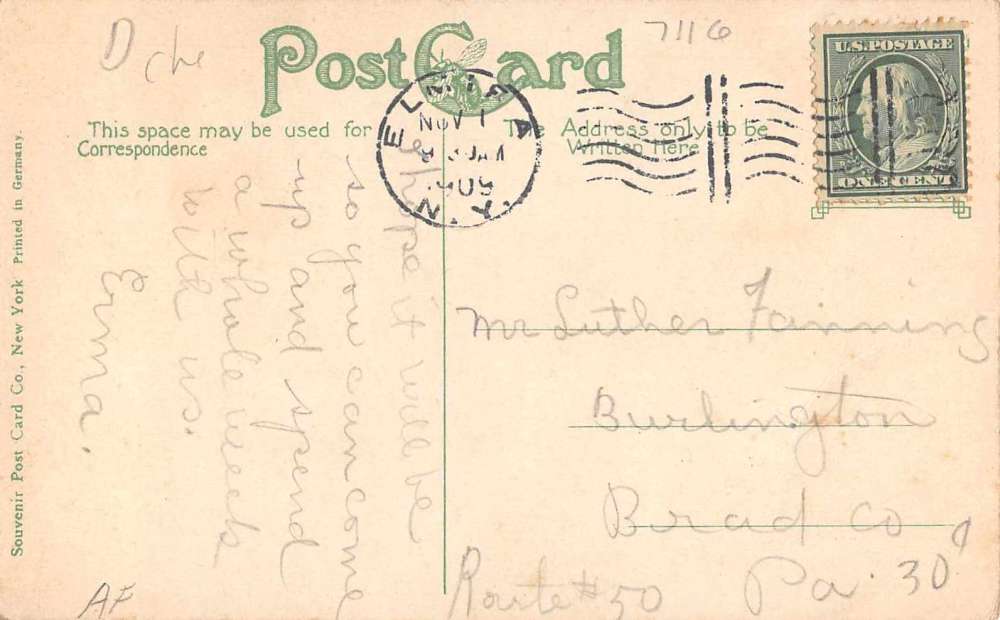 7116
D che
Post Card
This space may be used for
Correspondence
The Address only to be
Written Here
ELMIRA
NOV 1
1909
N.Y.
U.S. POSTAGE
ONE CENT
hope it will be
so you can come
up and spend
a whole week
with us.
Erma.
Mr Luther Fanning
Burlington
Brad Co
Pa. 30
Route #50
AF
Souvenir Post Card Co., New York Printed in Germany.